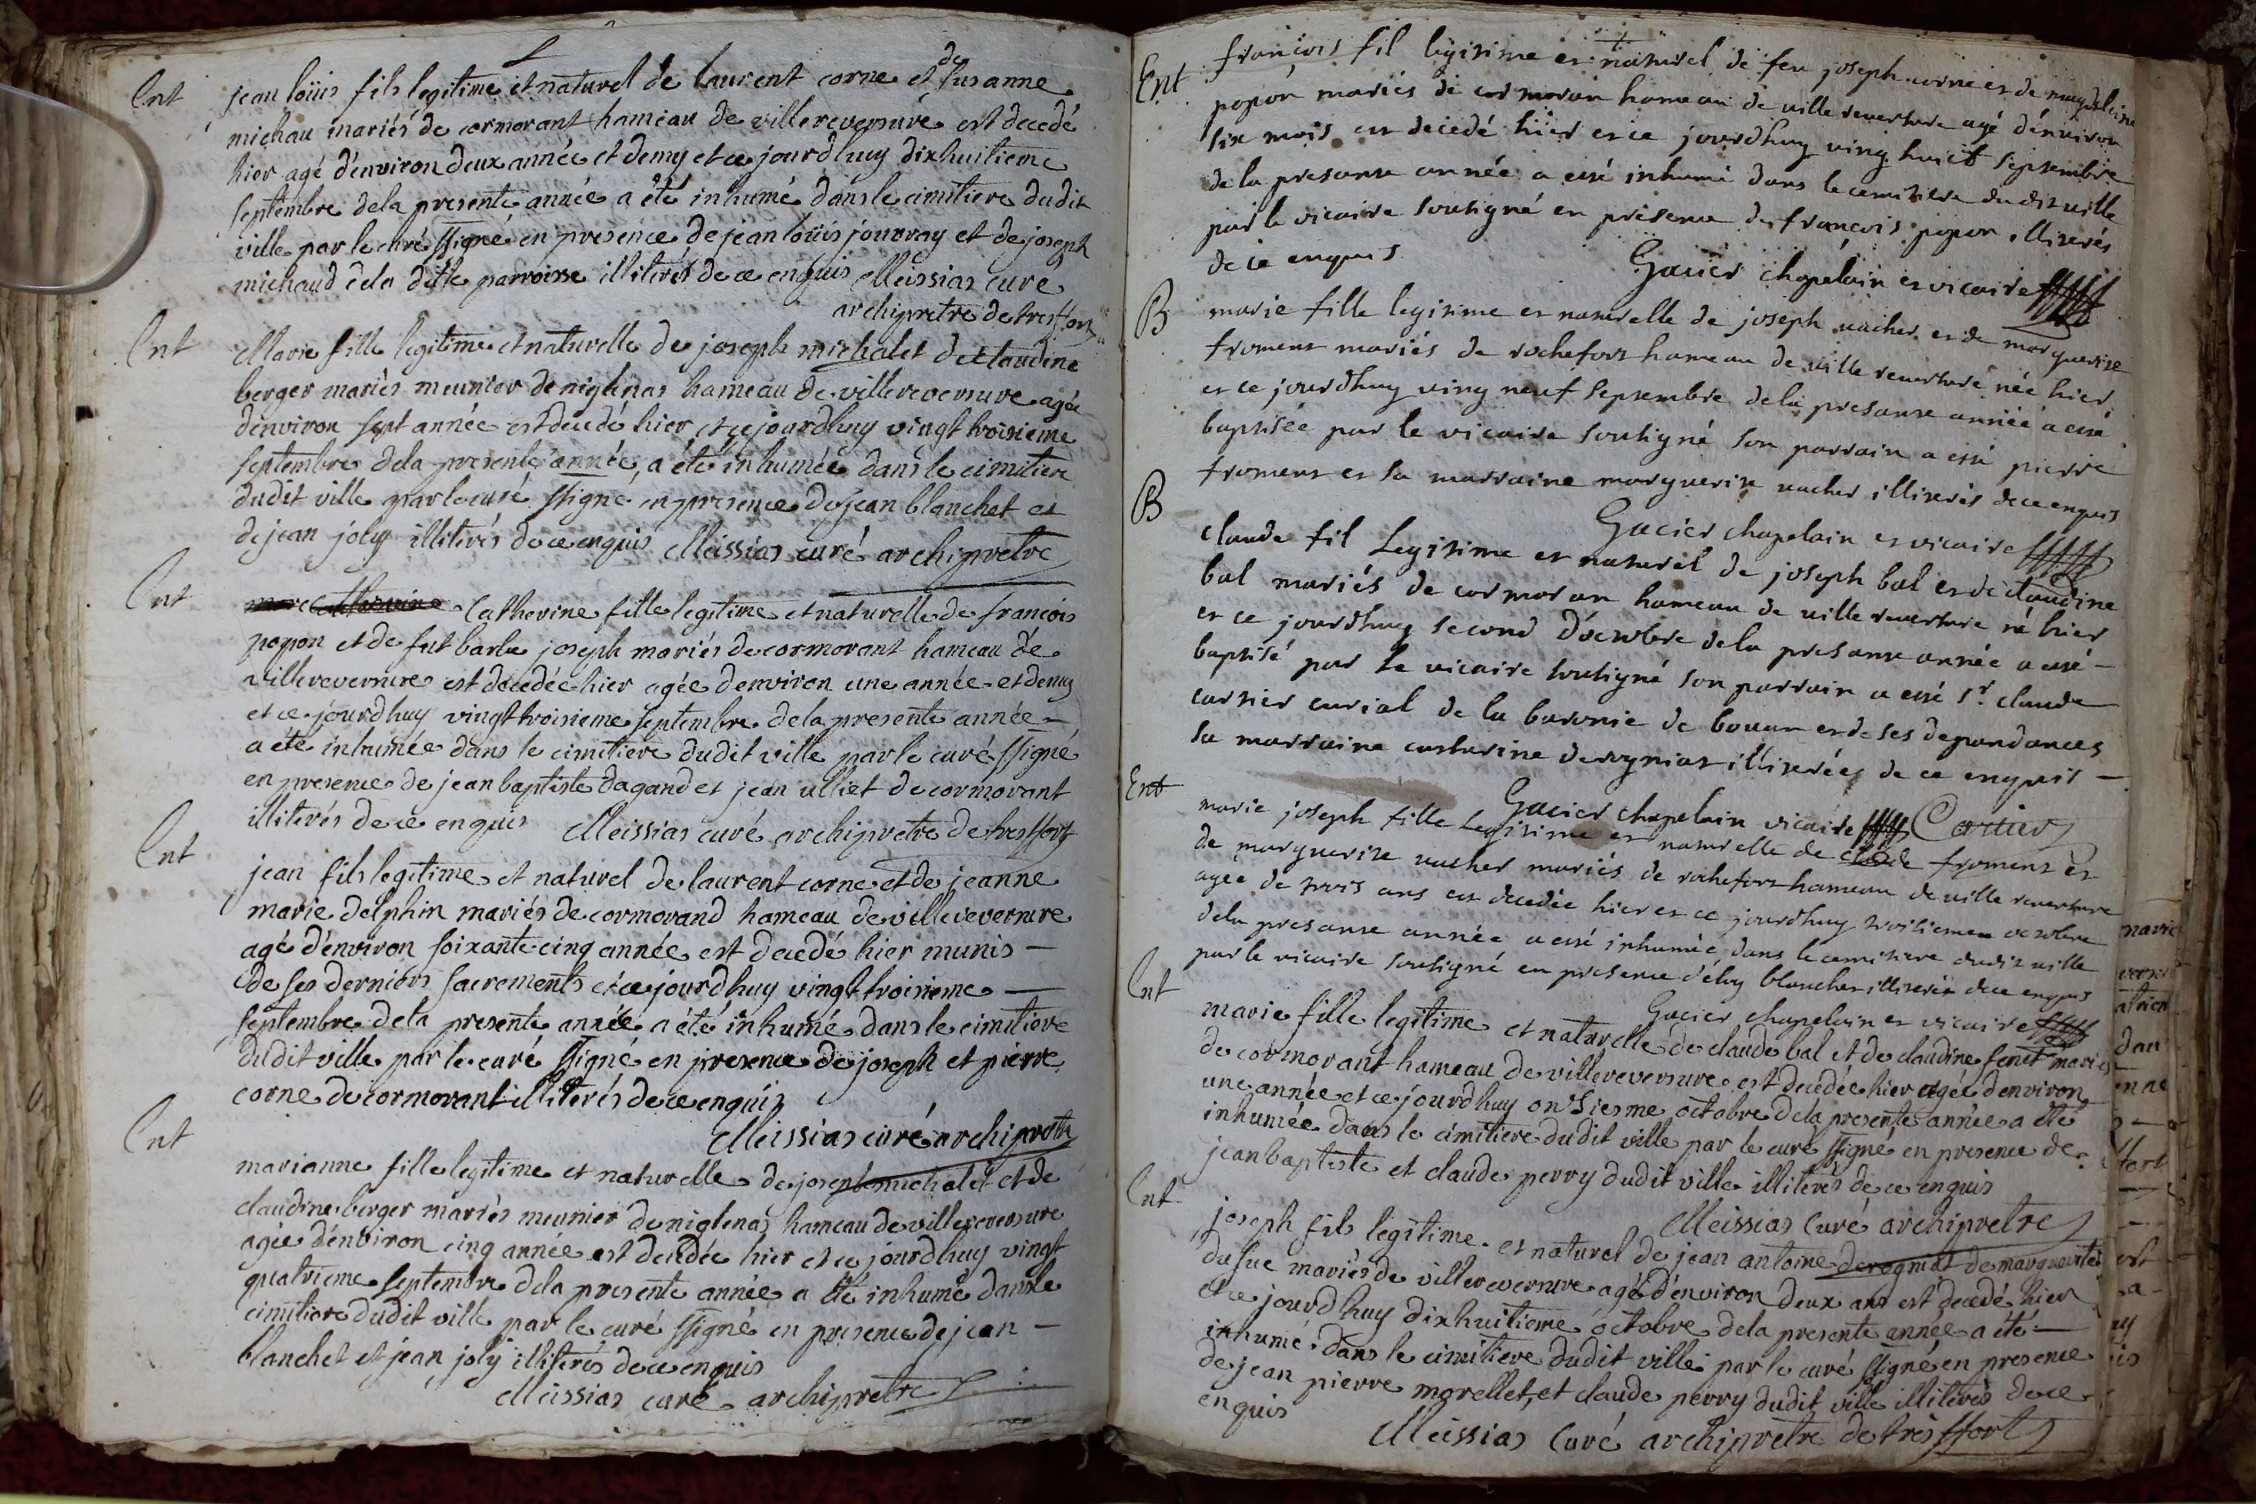 Ent
jean loüis fils legitime et naturel de laurent corne et de susanne
michau mariés de cormorant hameau de villereversure est decedé
hier agé d'environ deux année et demy et ce jourdhuy dixhuitieme
septembre dela presente année a été inhumé dans le cimitiere dudit
ville par le curé ssigné en presence de jean loüis jouvray et de joseph
michaud dela ditte parroisse illiterés de ce enquis Meissias curé
archipretre de tresffort
Ent
Marie fille legitime et naturelle de joseph michalet de claudine
berger mariés meunier de niglenas hameau de villereversure agée
d'environ sept année est decedé hier et ce jourdhuy vingt troisieme
septembre dela presente année, a été inhumée dans le cimitiere
dudit ville par le curé ssigné en presence de jean blanchet et
de jean joly illiterés de ce enquis Meissias curé archipretre
Ent
Catherine fille legitime et naturelle de francois
popon et de fut barbe joseph mariés de cormorant hameau de
villereversure est decedée hier agée d'environ une année et demy
et ce jourdhuy vingt troisieme septembre dela presente année
a été inhumée dans le cimitiere dudit ville par le curé ssigné
en presence de jean baptiste dagand et jean ulliet de cormorant
illiterés de ce enquis Meissias curé archipretre de tresffort
Ent
jean fils legitime et naturel de laurent corne et de jeanne
marie delphin mariés de cormorand hameau de villereversure
agé d'environ soixante cinq année est decedé hier munis
de ses derniers sacrements et ce jourdhuy vingt troisieme
septembre dela presente année a été inhumé dans le cimitiere
dudit ville par le curé ssigné en presence de joseph et pierre
corne de cormorant illiterés de ce enquis
Meissias curé archipretre
Ent
marianne fille legitime et naturelle de joseph michalet et de
claudine berger mariés meunier de niglenas hameau de villereversure
agée d'environ cinq année est decedée hier et ce jourdhuy vingt
quatrieme septembre dela presente année a été inhumé dans le
cimitiere dudit ville par le curé ssigné en presence de jean
blanchet et jean joly illiterés de ce enquis
Meissias curé archipretre
Ent
françois fil legitime et naturel de feu joseph corne et de magdeleine
popon mariés de cormoran hameau de ville reversure agé d'environ
six mois est decedé hier et ce jourdhuy ving huict septembre
de la presante année a esté inhumé dans le cemitiere du dit ville
par le vicaire soutigné en presence de françois popon illiterés
de ce enquis
Gacier chapelain et vicaire
B
marie fille legitime et naturelle de joseph vacher et de marguerite
froment mariés de rochefort hameau de ville reversure née hier
et ce jourdhuy ving neuf septembre dela presante année a esté
baptisée par le vicaire soutigné son parrain a esté pierre
froment et sa marraine marguerite vacher illiterés de ce enquis
Gacier chapelain et vicaire
B
claude fil Legitime et naturel de joseph bal et de claudine
bal mariés de cormoran hameau de ville reversure né hier
et ce jourdhuy second d'octobre dela presante année a esté
baptisé par le vicaire soutigné son parrain a esté Sr. claude
cartier curial de la baronie de bouan et de ses dependances
sa marraine catherine derogniat illiterées de ce enquis
Gacier chapelain vicaire Cartier
Ent
marie joseph fille Legitime et naturelle de claude froment et
de marguerite vacher mariés de rochefort hameau de ville reversure
agée de trois ans est decedée hier et ce jourdhuy troitieme octobre
dela presante année a esté inhumée dans le cemitiere dudit ville
par le vicaire soutigné en presence d'eloy blanchet illiterés de ce enquis
Gacier chapelain et vicaire
Ent
marie fille legitime et naturelle de claude bal et de claudine fenet mariés
de cormorant hameau de villereversure est decedée hier agée d'environ
une année et ce jourdhuy onsiesme octobre dela presente année a été
inhumée dans le cimitiere dudit ville par le curé ssigné en presence de
jean baptiste et claude perry dudit ville illiterés de ce enquis
Meissias Curé archipretre
Ent
joseph fils legitime et naturel de jean antoine derogniat de marguerite
dufue mariés de villereversure agé d'environ deux ans est decedé hier
et ce jourdhuy dixhuitieme octobre dela presente année a été
inhumé dans le cimitiere dudit ville par le curé ssigné en presence
de jean pierre morellet, et claude perry dudit ville illiterés de ce
enquis
Meissias Curé archipretre de tresffort